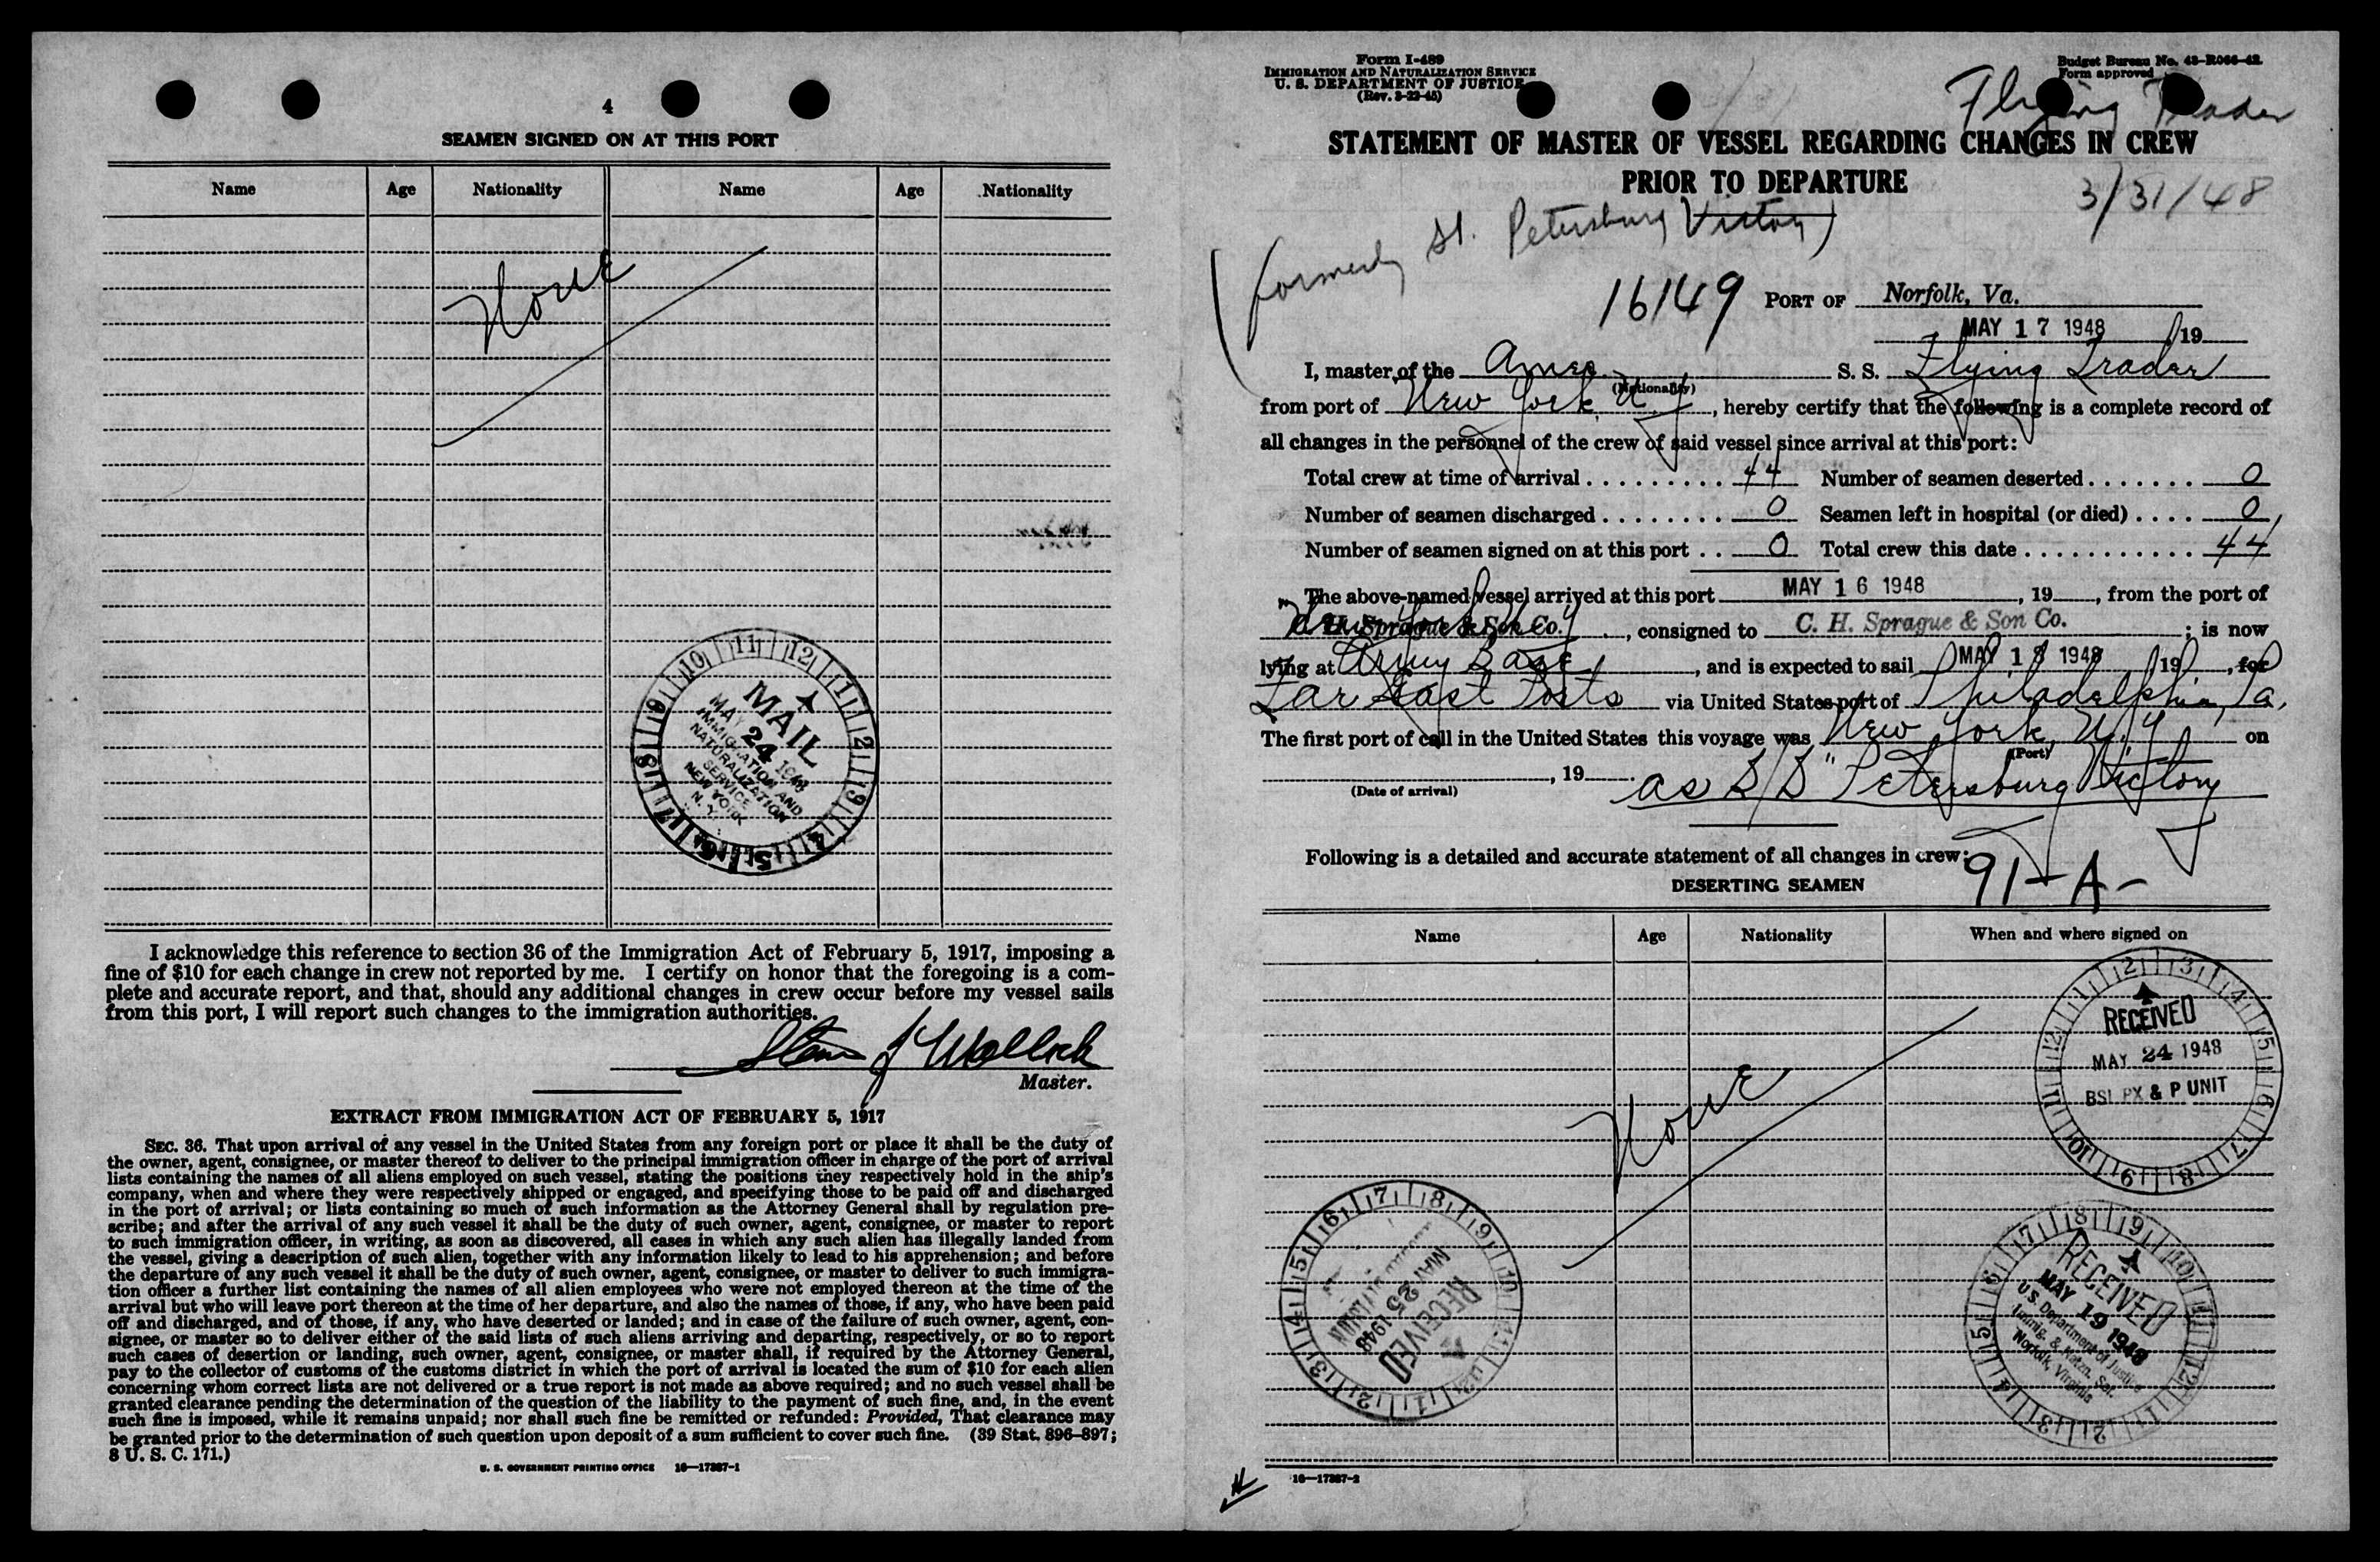 4
SEAMEN SIGNED ON AT THIS PORT
Name Age Nationality Name Age Nationality
None
MAIL
MAY 24 1948
IMMIGRATION AND
NATURALIZATION
SERVICE
NEW YORK
N. Y.
I acknowledge this reference to section 36 of the Immigration Act of February 5, 1917, imposing a
fine of $10 for each change in crew not reported by me. I certify on honor that the foregoing is a com-
plete and accurate report, and that, should any additional changes in crew occur before my vessel sails
from this port, I will report such changes to the immigration authorities.
Master.
EXTRACT FROM IMMIGRATION ACT OF FEBRUARY 5, 1917
SEC. 36. That upon arrival of any vessel in the United States from any foreign port or place it shall be the duty of
the owner, agent, consignee, or master thereof to deliver to the principal immigration officer in charge of the port of arrival
lists containing the names of all aliens employed on such vessel, stating the positions they respectively hold in the ship's
company, when and where they were respectively shipped or engaged, and specifying those to be paid off and discharged
in the port of arrival; or lists containing so much of such information as the Attorney General shall by regulation pre-
scribe; and after the arrival of any such vessel it shall be the duty of such owner, agent, consignee, or master to report
to such immigration officer, in writing, as soon as discovered, all cases in which any such alien has illegally landed from
the vessel, giving a description of such alien, together with any information likely to lead to his apprehension; and before
the departure of any such vessel it shall be the duty of such owner, agent, consignee, or master to deliver to such immigra-
tion officer a further list containing the names of all alien employees who were not employed thereon at the time of the
arrival but who will leave port thereon at the time of her departure, and also the names of those, if any, who have been paid
off and discharged, and of those, if any, who have deserted or landed; and in case of the failure of such owner, agent, con-
signee, or master so to deliver either of the said lists of such aliens arriving and departing, respectively, or so to report
such cases of desertion or landing, such owner, agent, consignee, or master shall, if required by the Attorney General,
pay to the collector of customs of the customs district in which the port of arrival is located the sum of $10 for each alien
concerning whom correct lists are not delivered or a true report is not made as above required; and no such vessel shall be
granted clearance pending the determination of the question of the liability to the payment of such fine, and, in the event
such fine is imposed, while it remains unpaid; nor shall such fine be remitted or refunded: Provided, That clearance may
be granted prior to the determination of such question upon deposit of a sum sufficient to cover such fine. (39 Stat. 896–897;
8 U. S. C. 171.)
U. S. GOVERNMENT PRINTING OFFICE 16—17387-1
Form I-489
IMMIGRATION AND NATURALIZATION SERVICE
U. S. DEPARTMENT OF JUSTICE
(Rev. 3-22-45)
Budget Bureau No. 43-R066-42
Form approved
Flying Trader
STATEMENT OF MASTER OF VESSEL REGARDING CHANGES IN CREW
PRIOR TO DEPARTURE
3/31/48
(formerly St. Petersburg Victory)
16149 PORT OF Norfolk, Va.
MAY 17 1948, 19
I, master of the Amer. S. S. Flying Trader
(Nationality)
from port of New York, N. Y., hereby certify that the following is a complete record of
all changes in the personnel of the crew of said vessel since arrival at this port:
Total crew at time of arrival 44 Number of seamen deserted 0
Number of seamen discharged 0 Seamen left in hospital (or died) 0
Number of seamen signed on at this port 0 Total crew this date 44
The above-named vessel arrived at this port MAY 16 1948, 19, from the port of
New York N Y C. H. Sprague & Son Co., consigned to C. H. Sprague & Son Co.; is now
lying at Army Base, and is expected to sail MAY 18 1948, 19, for
Far East Ports via United States port of Philadelphia, Pa,
The first port of call in the United States this voyage was New York, N. Y. on
(Port)
, 19 as S/S "Petersburg Victory
(Date of arrival)
Following is a detailed and accurate statement of all changes in crew:
91-A-
DESERTING SEAMEN
Name Age Nationality When and where signed on
None
RECEIVED
MAY 24 1948
BSI PX & P UNIT
RECEIVED
MAY 25 1948
RECEIVED
MAY 19 1948
U.S. Department of Justice
Immig. & Natzn. Ser.
Norfolk, Virginia
16—17387-2